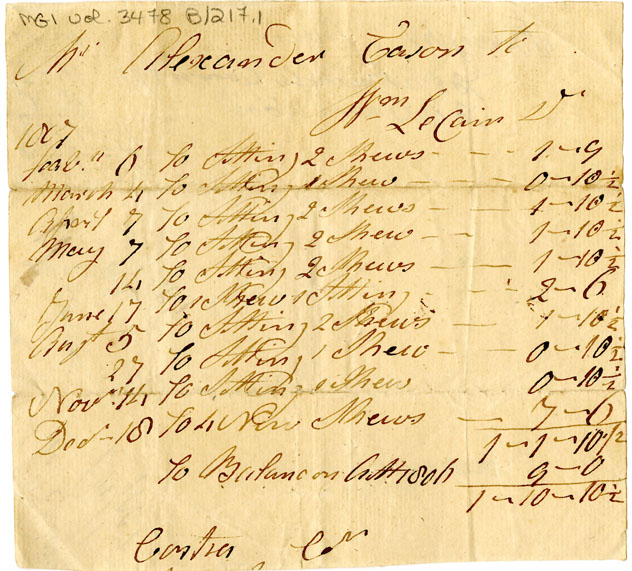 MG1 Vol. 3478 B/217.1
Mr Alexander Eason to
Wm LeCain Dr
1807
Feab.y 6 To Setting 2 Shews — — 1 ~ 9
March 4 To Setting 1 Shew — — 0 ~ 10 1/2
April 7 To Setting 2 Shews — 1 ~ 10 1/2
May 7 To Setting 2 Shew — 1 ~ 10 1/2
14 To Setting 2 Shews — — 1 ~ 10 1/2
June 17 To 1 Shew 1 Setting — 2 ~ 6
Augt 5 To Setting 2 Shews — 1 ~ 10 1/2
27 To Setting 1 Shew — 0 ~ 10 1/2
Novr 14 To Setting 1 Shew 0 ~ 10 1/2
Decr 18 To 4 New Shews — 7 ~ 6
1 ~ 1 ~ 10 1/2
To Balance on 1806 9 ~ 0
1 ~ 10 ~ 10 1/2
Contra Cr